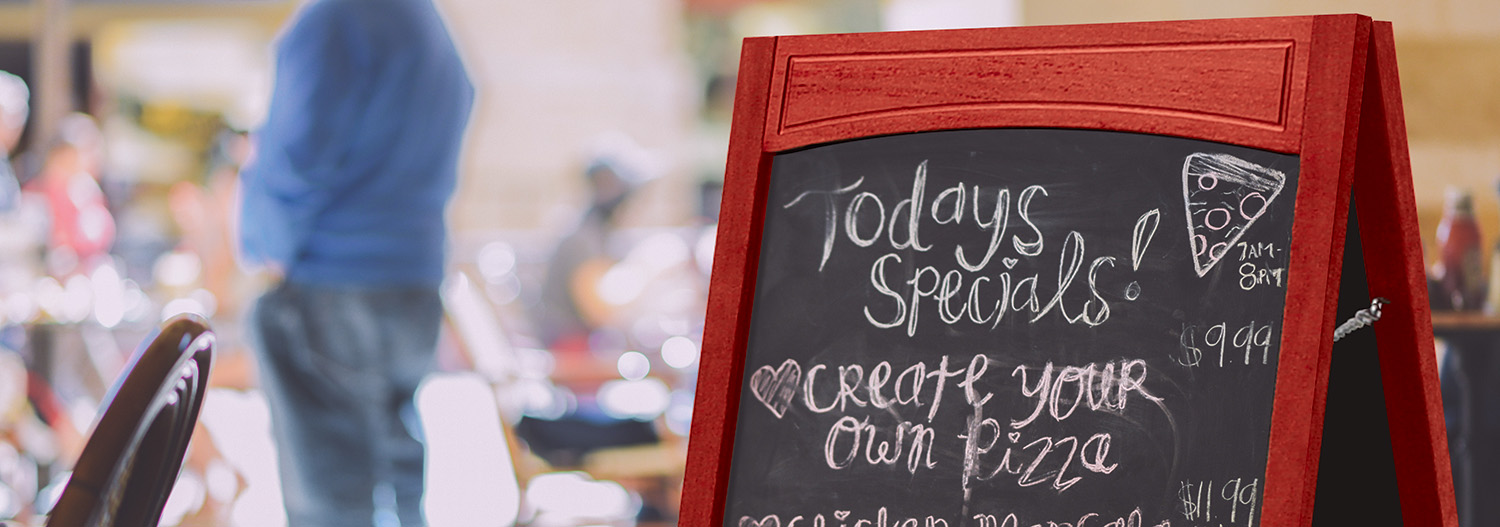 Todays
Specials!
7AM-
8PM
$9.99
Create Your
Own Pizza
$11.99
Chicken